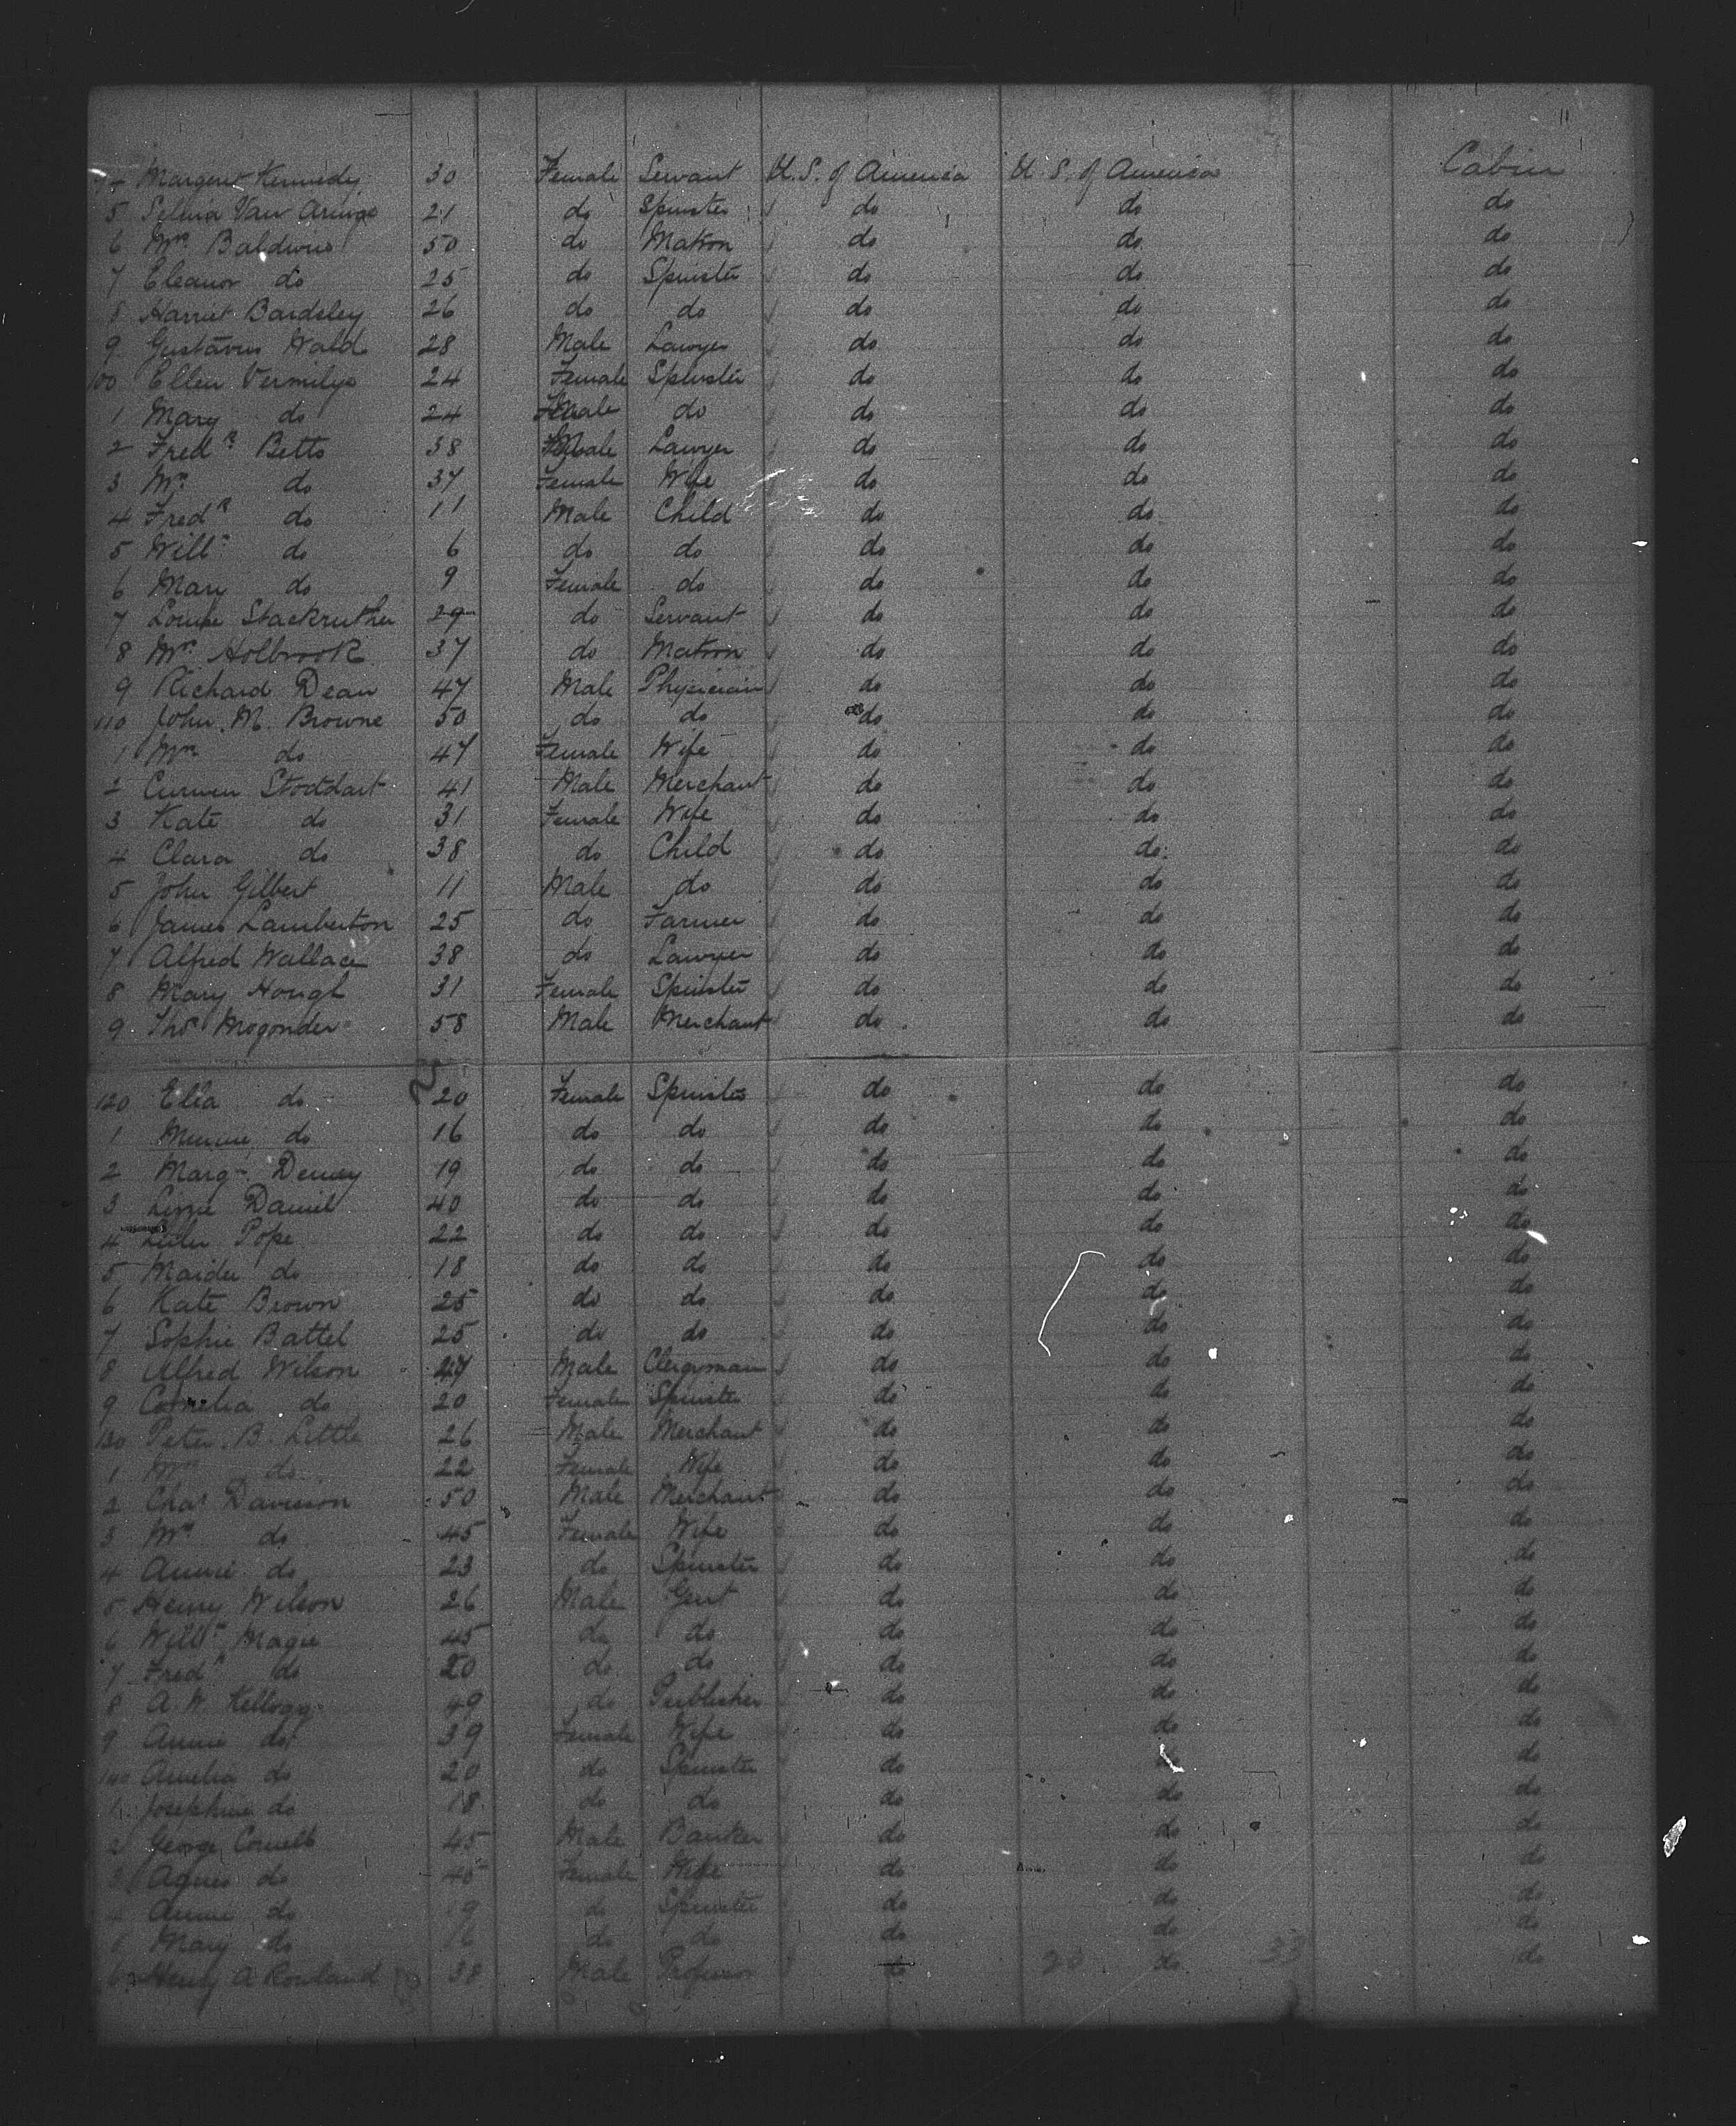 Margaret Kennedy 30 Female Servant U.S. of America U.S. of America Cabin
5 Selina Van 21 do Spinster do do do
6 Mrs. Baldwin 50 do Matron do do do
7 Eleanor do 25 do Spinster do do do
8 Harriet Bardsley 26 do do do do do
9 Gustavus Wald 28 Male Lawyer do do do
100 Ellen Vermilye 24 Female Spinster do do do
1 Mary do 24 Female do do do do
2 Fredk. Betts 38 Male Lawyer do do do
3 Mrs. do 37 Female Wife do do do
4 Fredk do 11 Male Child do do do
5 Will: do 6 do do do do do
6 Mary do 9 Female do do do do
7 Louise Stackruther 29 do Servant do do do
8 Mrs. Holbrook 37 do Matron do do do
9 Richard Dean 47 Male Physician do do do
110 John M. Browne 50 do do do do do
1 Mrs do 47 Female Wife do do do
2 Curwen Stoddart 41 Male Merchant do do do
3 Kate do 31 Female Wife do do do
4 Clara do 38 do Child do do do
5 John Gilbert 11 Male do do do do
6 James Lamberton 25 do Farmer do do do
7 Alfred Wallace 38 do Lawyer do do do
8 Mary Hough 31 Female Spinster do do do
9 Thos Mogonder 58 Male Merchant do do do
120 Ella do 20 Female Spinster do do do
1 Minnie do 16 do do do do do
2 Marg. Dewey 19 do do do do do
3 Lizzie Daniel 40 do do do do do
4 Pope 22 do do do do do
5 Maider do 18 do do do do do
6 Kate Brown 25 do do do do do
7 Sophie Battel 25 do do do do do
8 Alfred Wilson 47 Male Clergyman do do do
9 Cornelia do 20 Female Spinster do do do
130 Peter B. Little 26 Male Merchant do do do
1 Mrs do 22 Female Wife do do do
2 Chas Davison 50 Male Merchant do do do
3 Mrs do 45 Female Wife do do do
4 Annie do 23 do Spinster do do do
5 Henry Wilson 26 Male Gent do do do
6 Willm Magie 45 do do do do do
7 Fredk do 20 do do do do do
8 A. W. Kellogg 49 do Publisher do do do
9 Annie do 39 Female Wife do do do
140 Amelia do 20 do Spinster do do do
1 Josephine do 18 do do do do do
2 George Cornell 45 Male Banker do do do
3 Agnes do 40 Female Wife do do do
4 Annie do 19 do Spinster do do do
5 Mary do 16 do do do do do
6 Henry A Rowland 38 Male Professor do 20 do 33 do